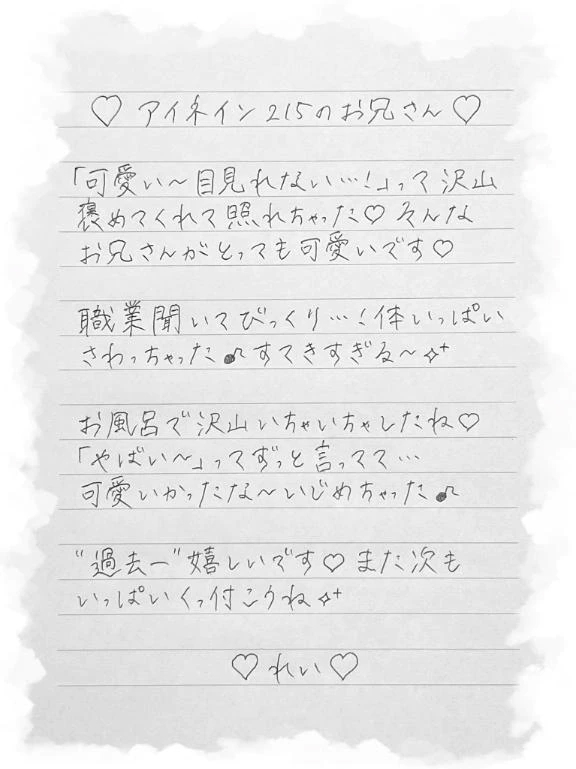 ♡ アイネイン215のお兄さん ♡
「可愛い～目見れない…!」って沢山
褒めてくれて照れちゃった♡ そんな
お兄さんがとっても可愛いです♡
職業聞いてびっくり…!体いっぱい
さわっちゃった♪すてきすぎる～✧⁺
お風呂で沢山いちゃいちゃしたね♡
「やばい～」ってずっと言ってて…
可愛いかったな～いじめちゃった♪
“過去一”嬉しいです♡ また次も
いっぱいくっ付こうね✧⁺
♡ れい ♡